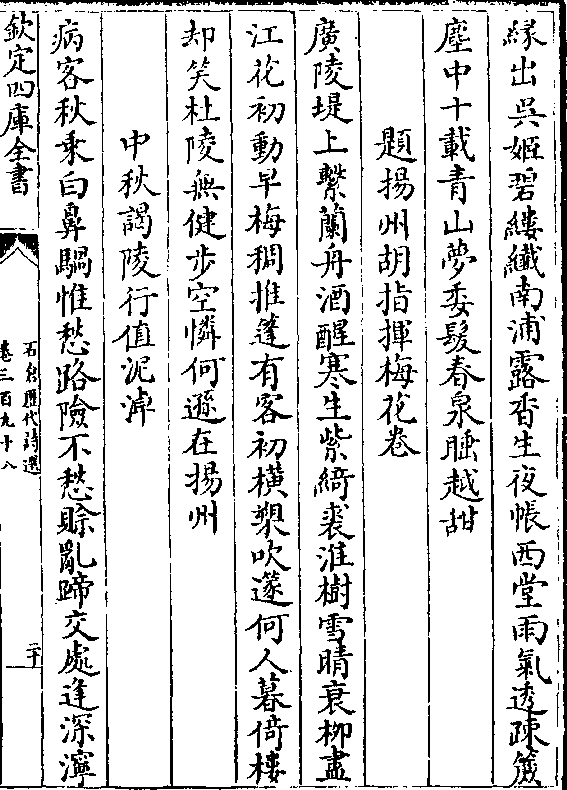 緣出吳姬碧縷纖南浦露香生夜帳西堂雨氣透疎簾
塵中十載青山夢委髮春泉睡越甜
題揚州胡指揮梅花卷
廣陵堤上繫蘭舟酒醒寒生紫綺裘淮樹雪晴衰柳盡
江花初動早梅稠推蓬有客初横槊吹篴何人暮倚樓
却笑杜陵無健步空憐何遜在揚州
中秋謁陵行值泥淖
病客秋乘白鼻騧惟愁路險不愁賒亂蹄交處逢深濘
欽定四庫全書
石倉歷代詩選
卷三百九十八
二十